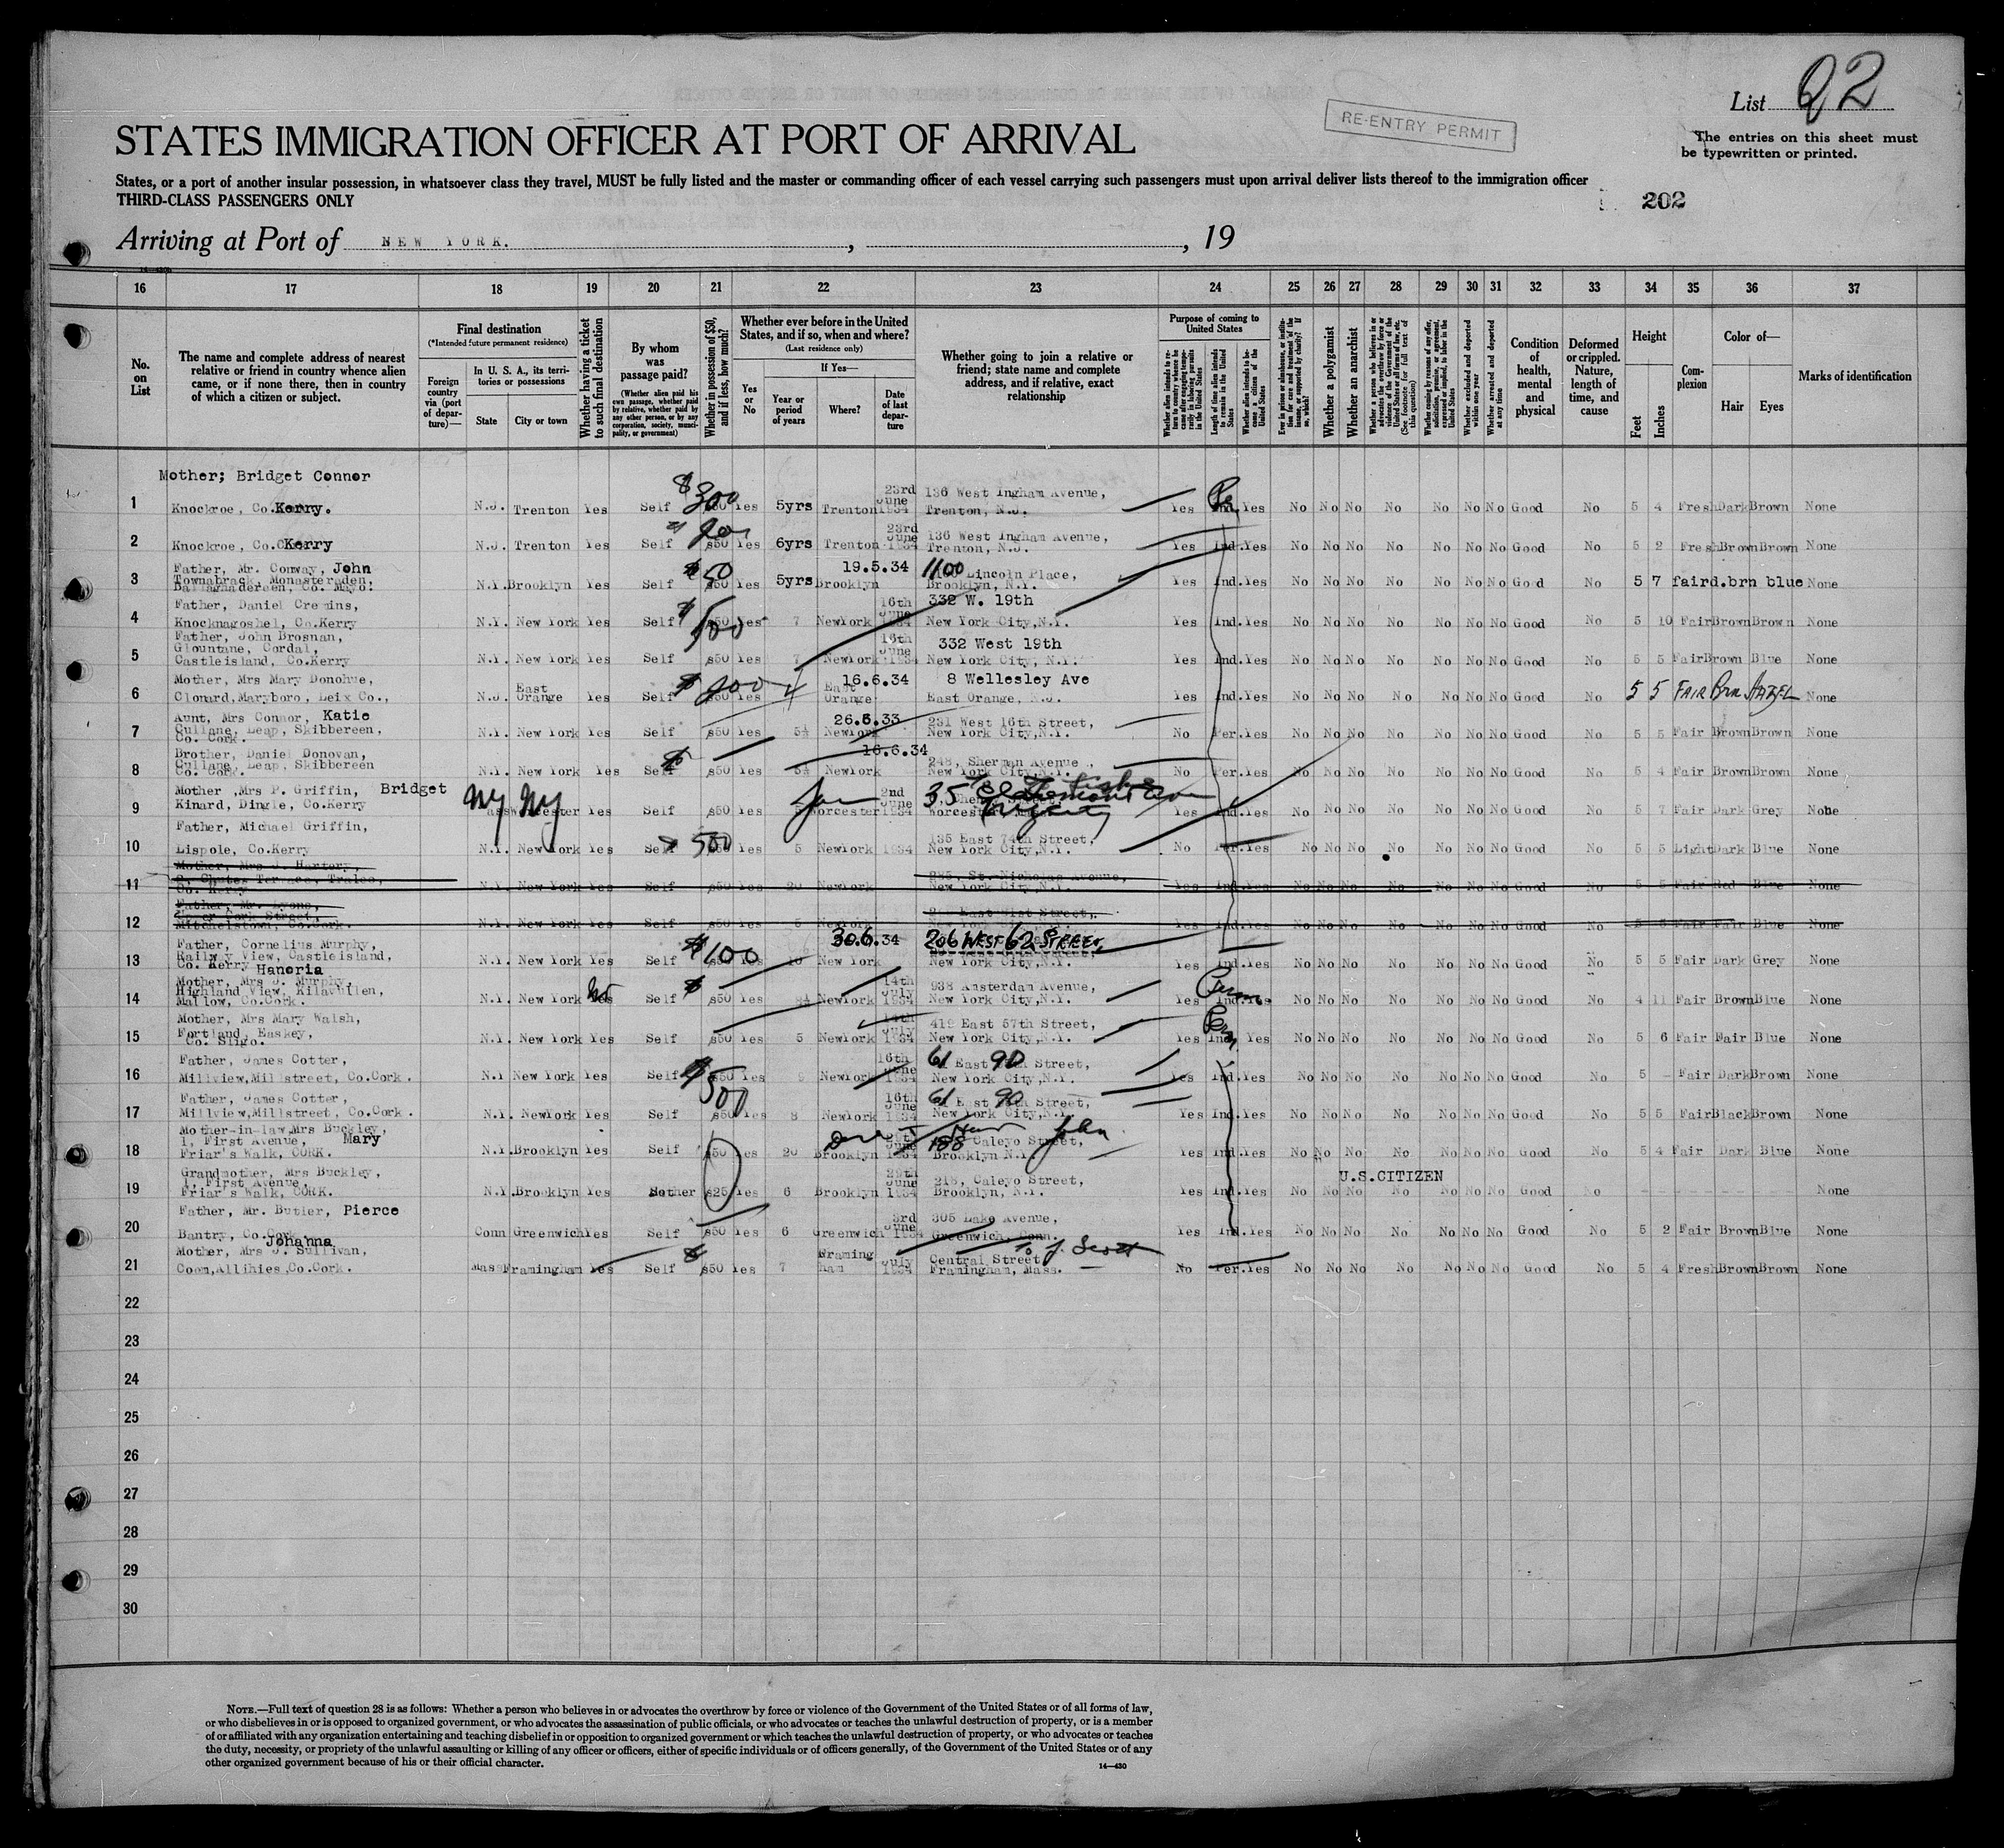 List 22
The entries on this sheet must
be typewritten or printed.
RE-ENTRY PERMIT
STATES IMMIGRATION OFFICER AT PORT OF ARRIVAL
States, or a port of another insular possession, in whatsoever class they travel, MUST be fully listed and the master or commanding officer of each vessel carrying such passengers must upon arrival deliver lists thereof to the immigration officer
THIRD-CLASS PASSENGERS ONLY
202
Arriving at Port of NEW YORK. , , 19
16 17 18 19 20 21 22 23 24 25 26 27 28 29 30 31 32 33 34 35 36 37
No. on List
The name and complete address of nearest relative or friend in country whence alien came, or if none there, then in country of which a citizen or subject.
Final destination
(*Intended future permanent residence)
Foreign country via (port of departure)—
In U. S. A., its territories or possessions
State
City or town
Whether having a ticket to such final destination
By whom was passage paid?
(Whether alien paid his own passage, whether paid by relative, whether paid by any other person, or by any corporation, society, municipality, or government)
Whether in possession of $50, and if less, how much?
Whether ever before in the United States, and if so, when and where?
(Last residence only)
Yes or No
If Yes—
Year or period of years
Where?
Date of last departure
Whether going to join a relative or friend; state name and complete address, and if relative, exact relationship
Purpose of coming to United States
Length of time alien intends to remain in the United States
Whether alien intends to become a citizen of the United States
Whether a polygamist
Whether an anarchist
Whether excluded and deported within one year
Whether arrested and deported at any time
Condition of health, mental and physical
Deformed or crippled. Nature, length of time, and cause
Height
Feet
Inches
Complexion
Color of—
Hair
Eyes
Marks of identification
Mother; Bridget Connor
1 Knockroe, Co. Kerry. N.J. Trenton Yes Self $300 $50 Yes 5yrs Trenton 23rd June 1934 136 West Ingham Avenue, Trenton, N.J. Yes Ind. Yes No No No No No No No Good No 5 4 Fresh Dark Brown None
2 Knockroe, Co. Kerry N.J. Trenton Yes Self $50 Yes 6yrs Trenton 23rd June 1934 136 West Ingham Avenue, Trenton, N.J. Yes Ind. Yes No No No No No No No Good No 5 2 Fresh Brown Brown None
Father, Mr. Conway, John
3 Townabrack, Monasteraden, Ballaghadereen, Co. Mayo. N.Y. Brooklyn Yes Self $50 $50 Yes 5yrs Brooklyn 19.5.34 1100 Lincoln Place, Brooklyn, N.Y. Yes Ind. Yes No No No No No No No Good No 5 7 fair d.brn blue None
Father, Daniel Cremins,
4 Knocknagoshel, Co.Kerry N.Y. New York Yes Self $500 $50 Yes 7 NewYork 16th June 1934 332 W. 19th New York City, N.Y. Yes Ind. Yes No No No No No No No Good No 5 10 Fair Brown Brown None
Father, John Brosnan,
5 Glountane, Cordal, Castleisland, Co.Kerry N.Y. New York Yes Self $50 Yes 7 NewYork 16th June 1934 332 West 19th New York City, N.Y. Yes Ind. Yes No No No No No No No Good No 5 5 Fair Brown Blue None
Mother, Mrs Mary Donohue,
6 Clonard, Maryboro, Leix Co., N.J. East Orange Yes Self $50 Yes 4 East Orange 16.6.34 8 Wellesley Ave East Orange, N.J. Yes Ind. Yes No No No No No No No Good No 5 5 FAIR Brn HAZEL None
Aunt, Mrs Connor, Katie
7 Cullane, Leap, Skibbereen, Co. Cork. N.Y. New York Yes Self $50 Yes 5½ NewYork 26.5.33 231 West 16th Street, New York City, N.Y. No Per. Yes No No No No No No No Good No 5 5 Fair Brown Brown None
Brother, Daniel Donovan,
8 Cullane, Leap, Skibbereen Co. Cork. N.Y. New York Yes Self $50 Yes 5½ NewYork 16.6.34 248, Sherman Avenue, New York City, N.Y. No Per. Yes No No No No No No No Good No 5 4 Fair Brown Brown None
Mother, Mrs P. Griffin, Bridget
9 Kinard, Dingle, Co.Kerry NY NY Yes Self $50 Yes Worcester 2nd June 1934 35 Yes Ind. Yes No No No No No No No Good No 5 7 Fair Dark Grey None
Father, Michael Griffin,
10 Lispole, Co.Kerry N.Y. New York Yes Self $500 $50 Yes 5 NewYork 1934 135 East 74th Street, New York City, N.Y. No Per. Yes No No No No No No No Good No 5 5 Light Dark Blue None
Mother, Mrs J. Hartery,
11 Terrace, Tralee, Co. Kerry N.Y. New York Yes Self $50 Yes 20 NewYork 285, St. Nicholas Avenue, New York City, N.Y. Yes Ind. Yes No No No No No No No Good No 5 5 Fair Red Blue None
Father, Mr. Lyons,
12 Upper Cork Street, Mitchelstown, Co.Cork. N.Y. New York Yes Self $50 Yes 5 NewYork East 41st Street, Yes Ind. Yes No No No No No No No Good No 5 5 Fair Fair Blue None
Father, Cornelius Murphy,
13 Railway View, Castleisland, Co. Kerry N.Y. New York Yes Self $100 $50 Yes 10 New York 30.6.34 206 WEST 62 STREET, New York City, N.Y. Yes Ind. Yes No No No No No No No Good No 5 5 Fair Dark Grey None
Hanoria
Mother, Mrs J. Murphy,
14 Highland View, Kilavullen, Mallow, Co.Cork. N.Y. New York No Self $50 Yes NewYork 14th July 1934 938 Amsterdam Avenue, New York City, N.Y. Yes Perm Ind. Yes No No No No No No No Good No 4 11 Fair Brown Blue None
Mother, Mrs Mary Walsh,
15 Fortland, Easkey, Co. Sligo. N.Y. New York Yes Self $50 Yes 5 NewYork 14th July 1934 419 East 57th Street, New York City, N.Y. Yes Perm Ind. Yes No No No No No No No Good No 5 6 Fair Fair Blue None
Father, James Cotter,
16 Millview, Millstreet, Co.Cork. N.Y New York Yes Self $500 $50 Yes NewYork 16th June 61 East 90 Street, New York City, N.Y. Yes Ind. Yes No No No No No No No Good No 5 - Fair Dark Brown None
Father, James Cotter,
17 Millview, Millstreet, Co.Cork. N.Y. NewYork Yes Self $50 Yes 8 NewYork 16th June 1934 61 East 90 Street, New York City, N.Y. Yes Ind. Yes No No No No No No No Good No 5 5 Fair Black Brown None
Mother-in-law, Mrs Buckley,
18 1, First Avenue, Mary Friar's Walk, CORK. N.Y. Brooklyn Yes Self $50 Yes 20 Brooklyn June 1934 John 188 Caleyo Street, Brooklyn N.Y. Yes Ind. Yes No No No No No No No Good No 5 4 Fair Dark Blue None
Grandmother, Mrs Buckley,
19 1, First Avenue, Friar's Walk, CORK. N.Y. Brooklyn Yes Mother $25 Yes 6 Brooklyn 29th June 1934 218, Caleyo Street, Brooklyn, N.Y. Yes Ind. Yes U.S.CITIZEN No No No No No No No Good No None
Father, Mr. Butler, Pierce
20 Bantry, Co.Cork Conn Greenwich Yes Self $50 Yes 6 Greenwich 3rd June 1934 305 Lake Avenue, Greenwich, Conn. Yes Ind. Yes No No No No No No No Good No 5 2 Fair Brown Blue None
Johanna
Mother, Mrs J. Sullivan,
21 Coom, Allihies, Co.Cork. Mass Framingham Yes Self $50 Yes 7 Framingham July 1934 To J. Scott Central Street Framingham, Mass. No Per. Yes No No No No No No No Good No 5 4 Fresh Brown Brown None
22
23
24
25
26
27
28
29
30
NOTE.—Full text of question 28 is as follows: Whether a person who believes in or advocates the overthrow by force or violence of the Government of the United States or of all forms of law,
or who disbelieves in or is opposed to organized government, or who advocates the assassination of public officials, or who advocates or teaches the unlawful destruction of property, or is a member
of or affiliated with any organization entertaining and teaching disbelief in or opposition to organized government or which teaches the unlawful destruction of property, or who advocates or teaches
the duty, necessity, or propriety of the unlawful assaulting or killing of any officer or officers, either of specific individuals or of officers generally, of the Government of the United States or of any
other organized government because of his or their official character.
14—430